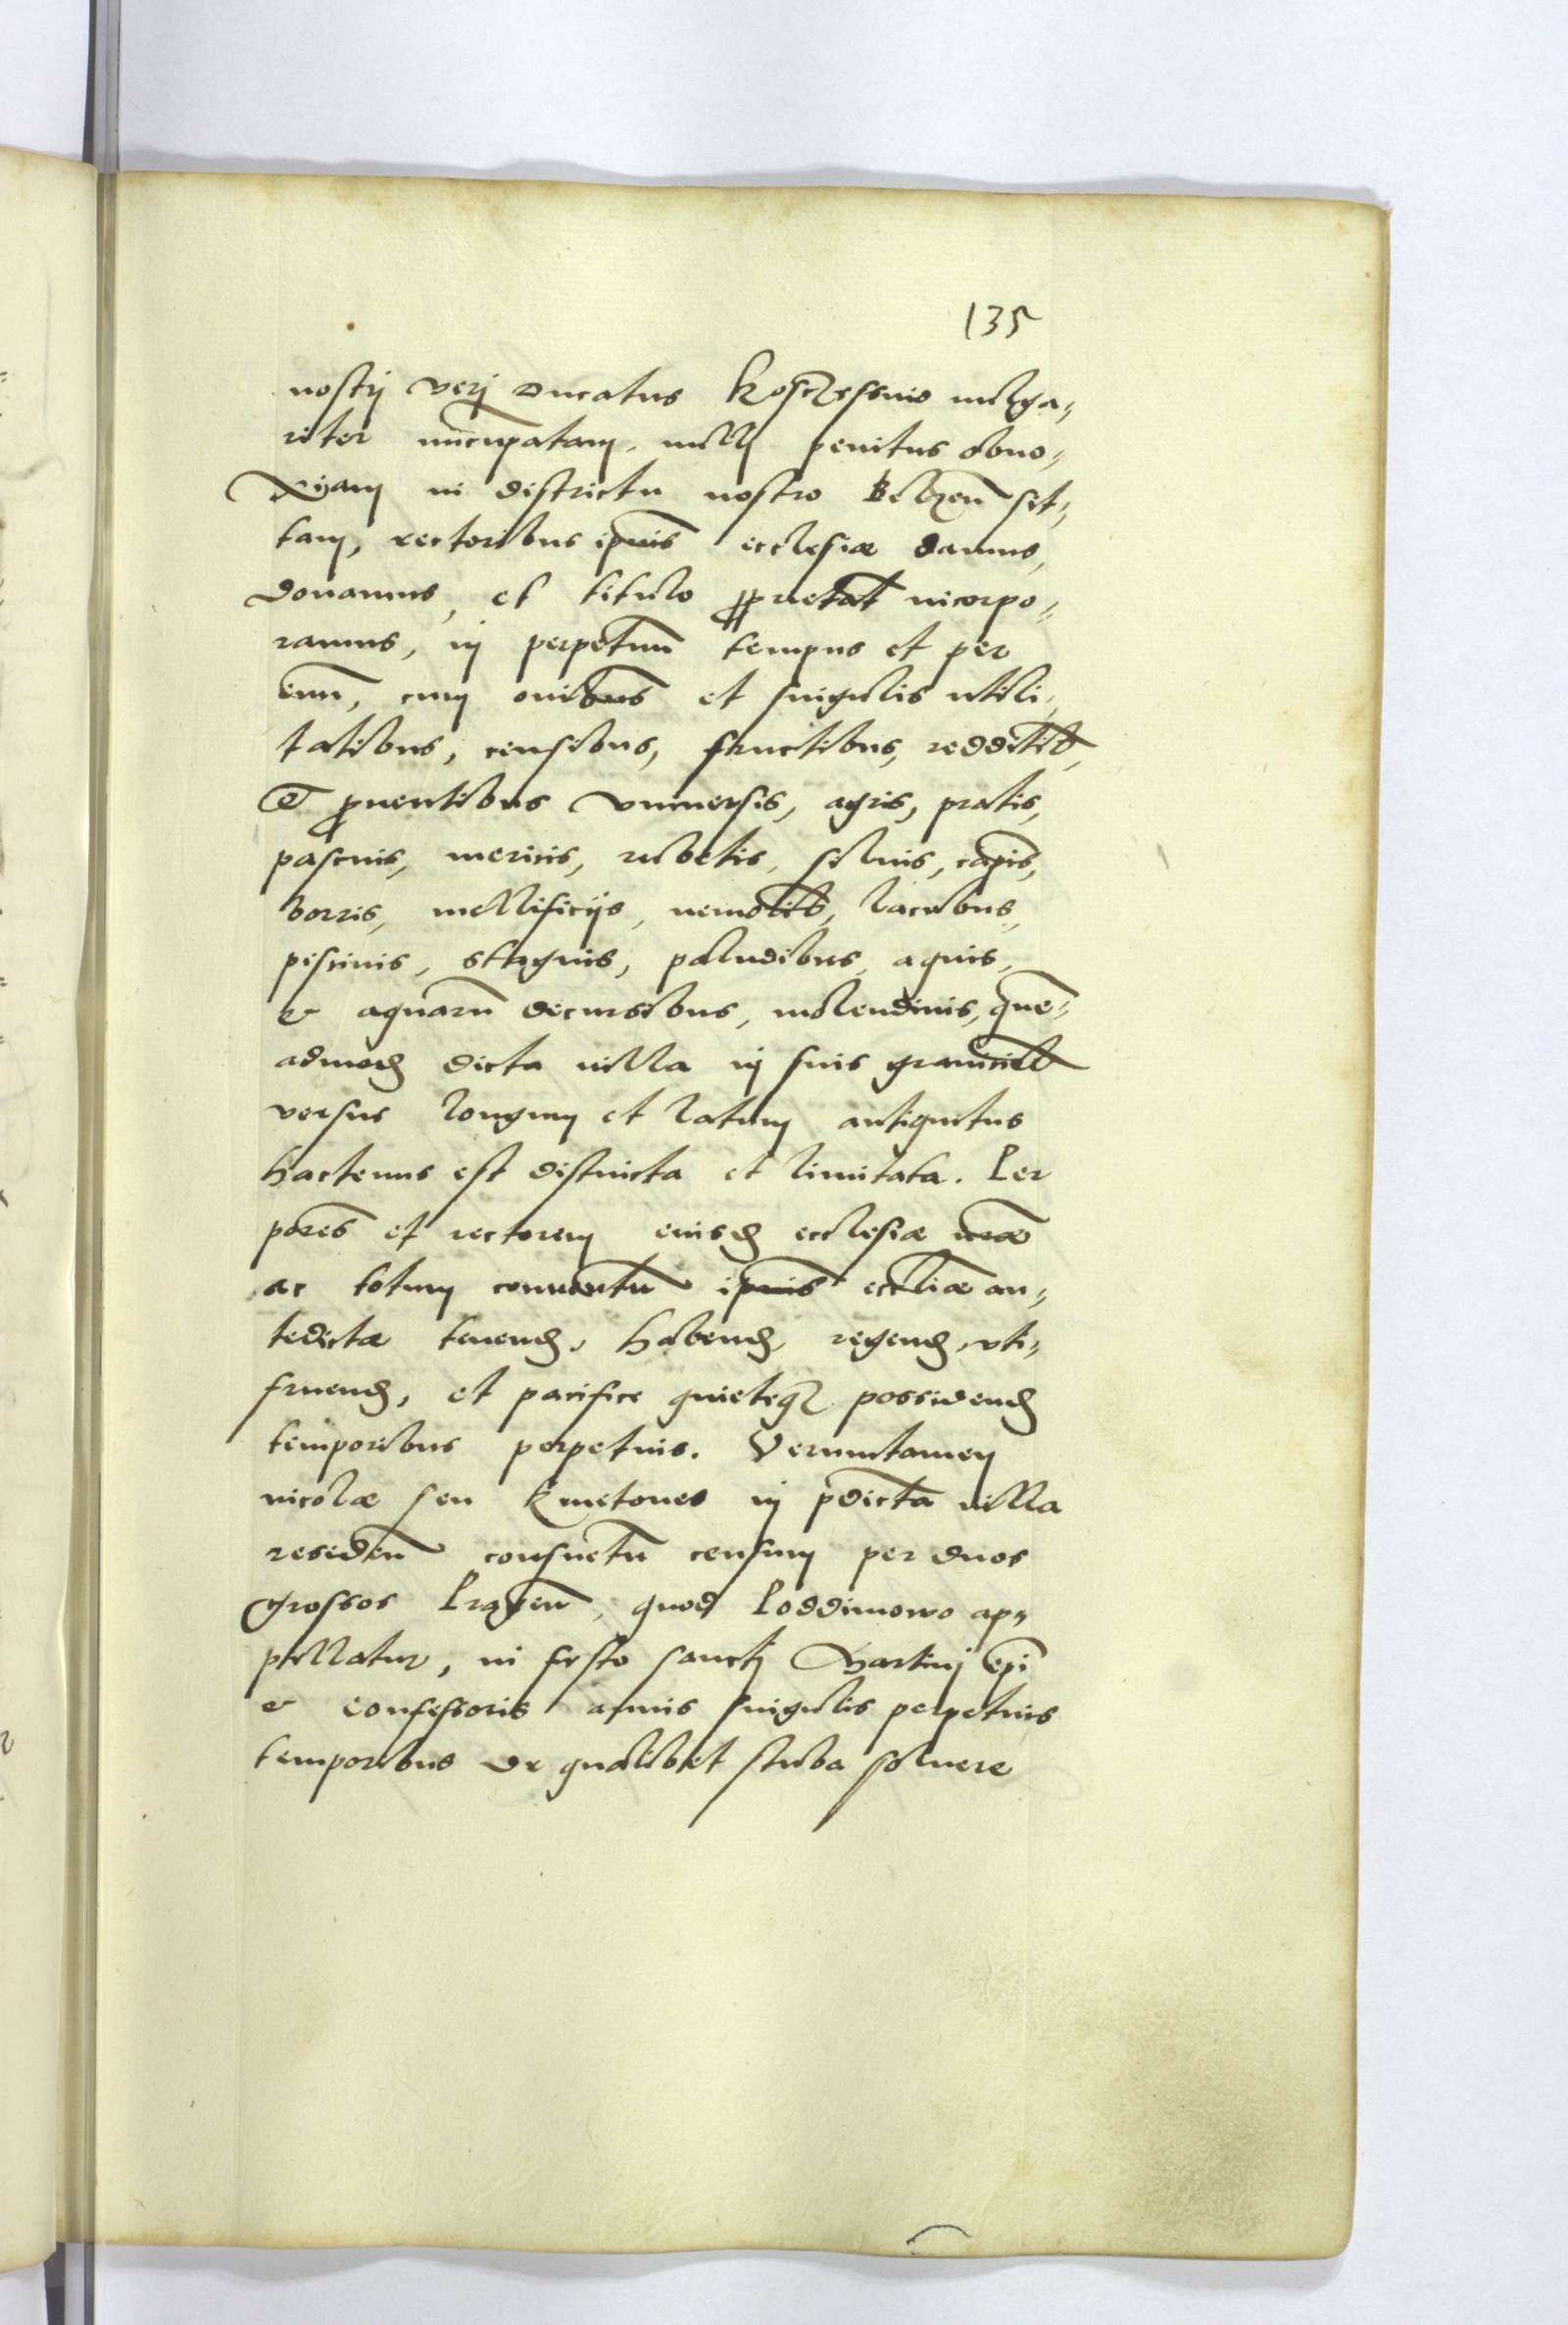 135
nostrj verj Ducatus Kosczessino vulga„
riter nūcupatam, nullj penitus obno„
xiam in districtu nostro Belzeñ sit„
tam, rectoribus ipīus ecclesiæ damus,
donamus, et titulo ꝓprietat̄ incorpo„
ramus, in perpetuū tempus et per
euū, cum on̄ibus et singulis utili„
tatibus, censibus, fructibus, redditib,
& ꝓuentibus vniuersis, agris, pratis,
pascuis, mericis, rubetis, siluis, cāpis,
borris, mellificijs, nemorib, lacubus,
piscinis, stagnis, paludibus, aquis,
& aquarū decursibus, molendinis, quē„
admod dicta uilla in suis granicieb
versus longum et latum antiquitus
hactenus est distincta et limitata. Per
pores̄ et rectorem eiusd ecclesiæ nr̄æ
ac totum conuentū ipīus eccliǣ an„
tedictæ tenend, habend, regend, vti„
fruend, et pacifice quieteqʒ possidend
temporibus perpetuis. Veruntamen
incolæ seu kmetones in p̄dicta uilla
resideñ consuetū censum per duos
grossos Prageñ, quod Poddimowo ap„
pellatur, in festo sanctj Martinj ep̄i
& confessoris annis singulis perpetuis
temporibus de qualibet stuba soluere